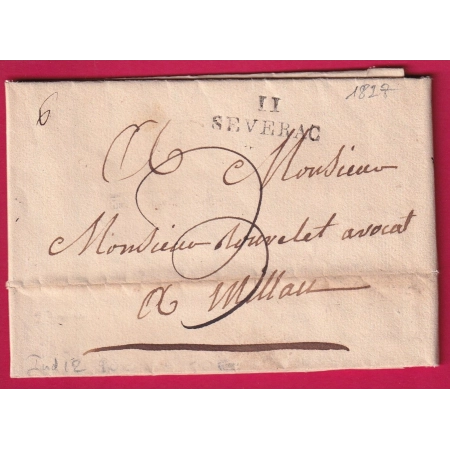 6
1827
11
SEVERAC
A Monsieur
3
Monsieur Rouvelet avocat
A Millau
Ind 12